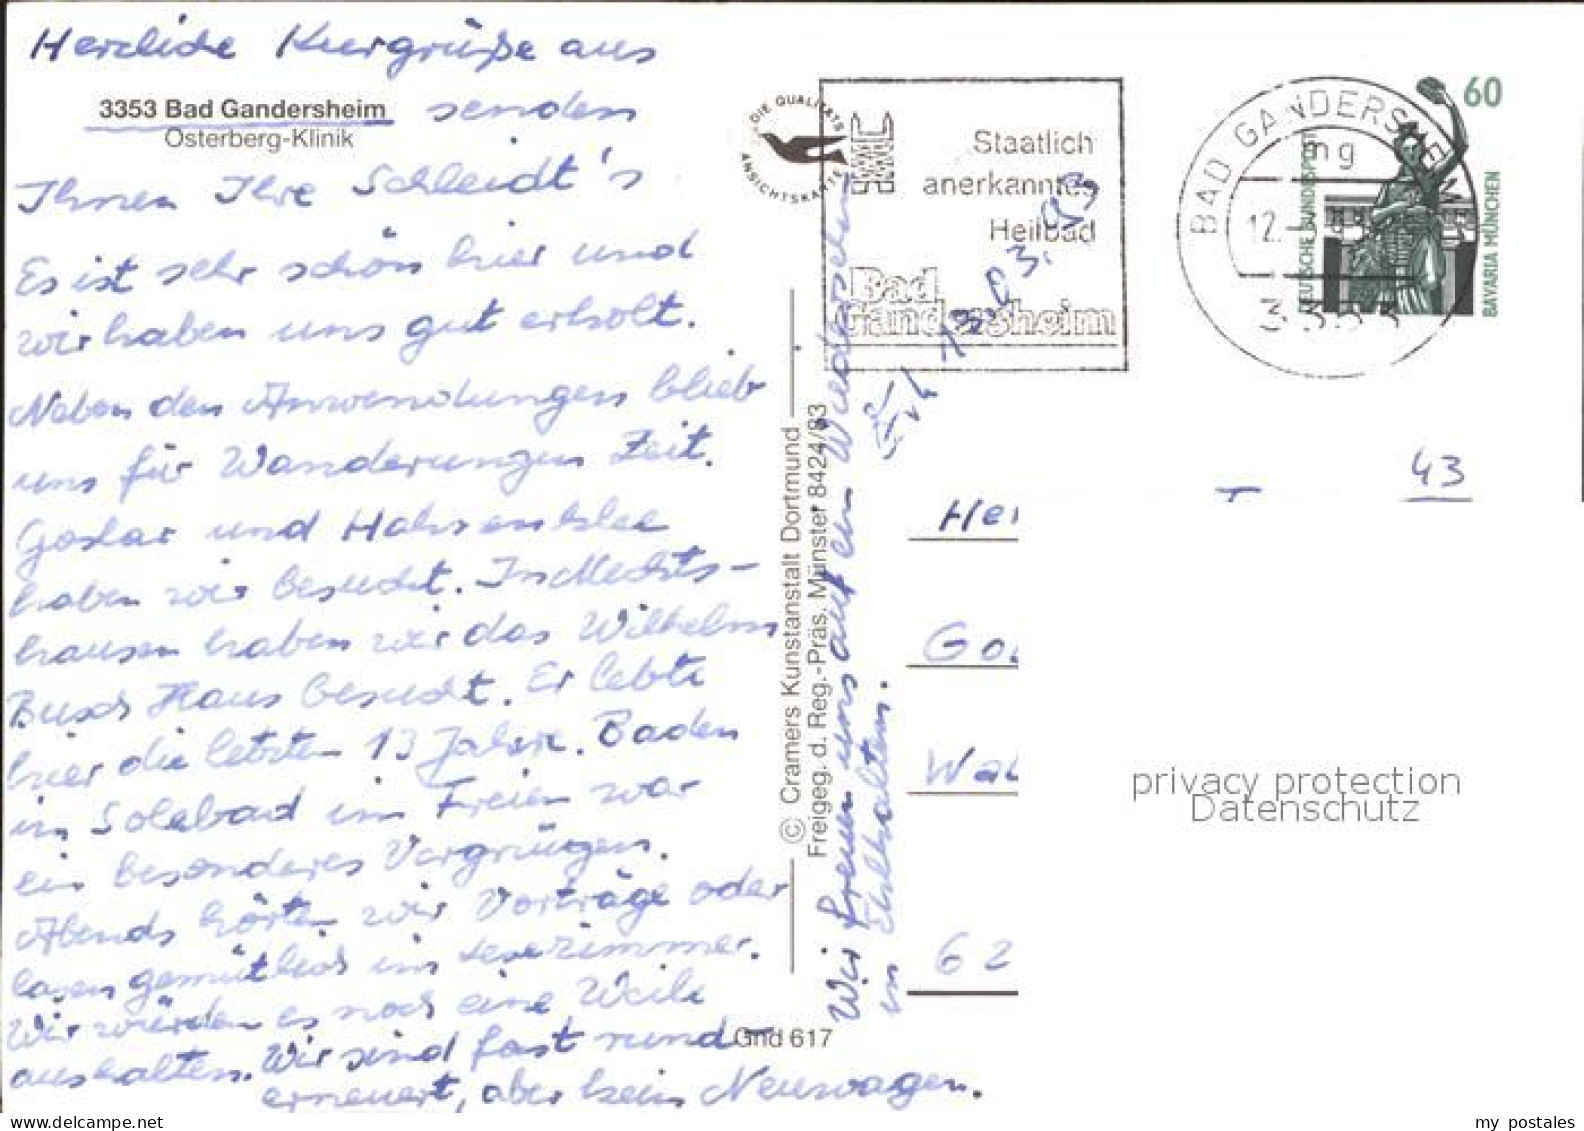 Herzliche Kurgrüße aus
3353 Bad Gandersheim senden
Osterberg-Klinik
Ihnen Ihre Schleidt's
Es ist sehr schön hier und
wir haben uns gut erholt.
Neben den Anwendungen blieb
uns für Wanderungen Zeit.
Goslar und Hahnenklee
haben wir besucht. In Mechts-
hausen haben wir das Wilhelm
Busch Haus besucht. Er lebte
hier die letzten 13 Jahre. Baden
im Solebad im Freien war
ein besonderes Vergnügen.
Abends hörten wir Vorträge oder
lasen gemütlich im Lesezimmer.
Wir würden es noch eine Weile
aushalten. Wir sind fast rund-
erneuert, aber kein Neuwagen.
Gnd 617
© Cramers Kunstanstalt Dortmund
Freigeg. d. Reg.-Präs. Münster 8424/83
Wir freuen uns auf ein Wiedersehen
in Ehlhalten.
DIE QUALITÄTS
ANSICHTSKARTE
Staatlich
anerkanntes
Heilbad
Bad
Gandersheim
BAD GANDERSHEIM
mg
12.
3353
60
DEUTSCHE BUNDESPOST
BAVARIA MÜNCHEN
43
Her
Go
Wal
62
privacy protection
Datenschutz
my postales
delcampe.net